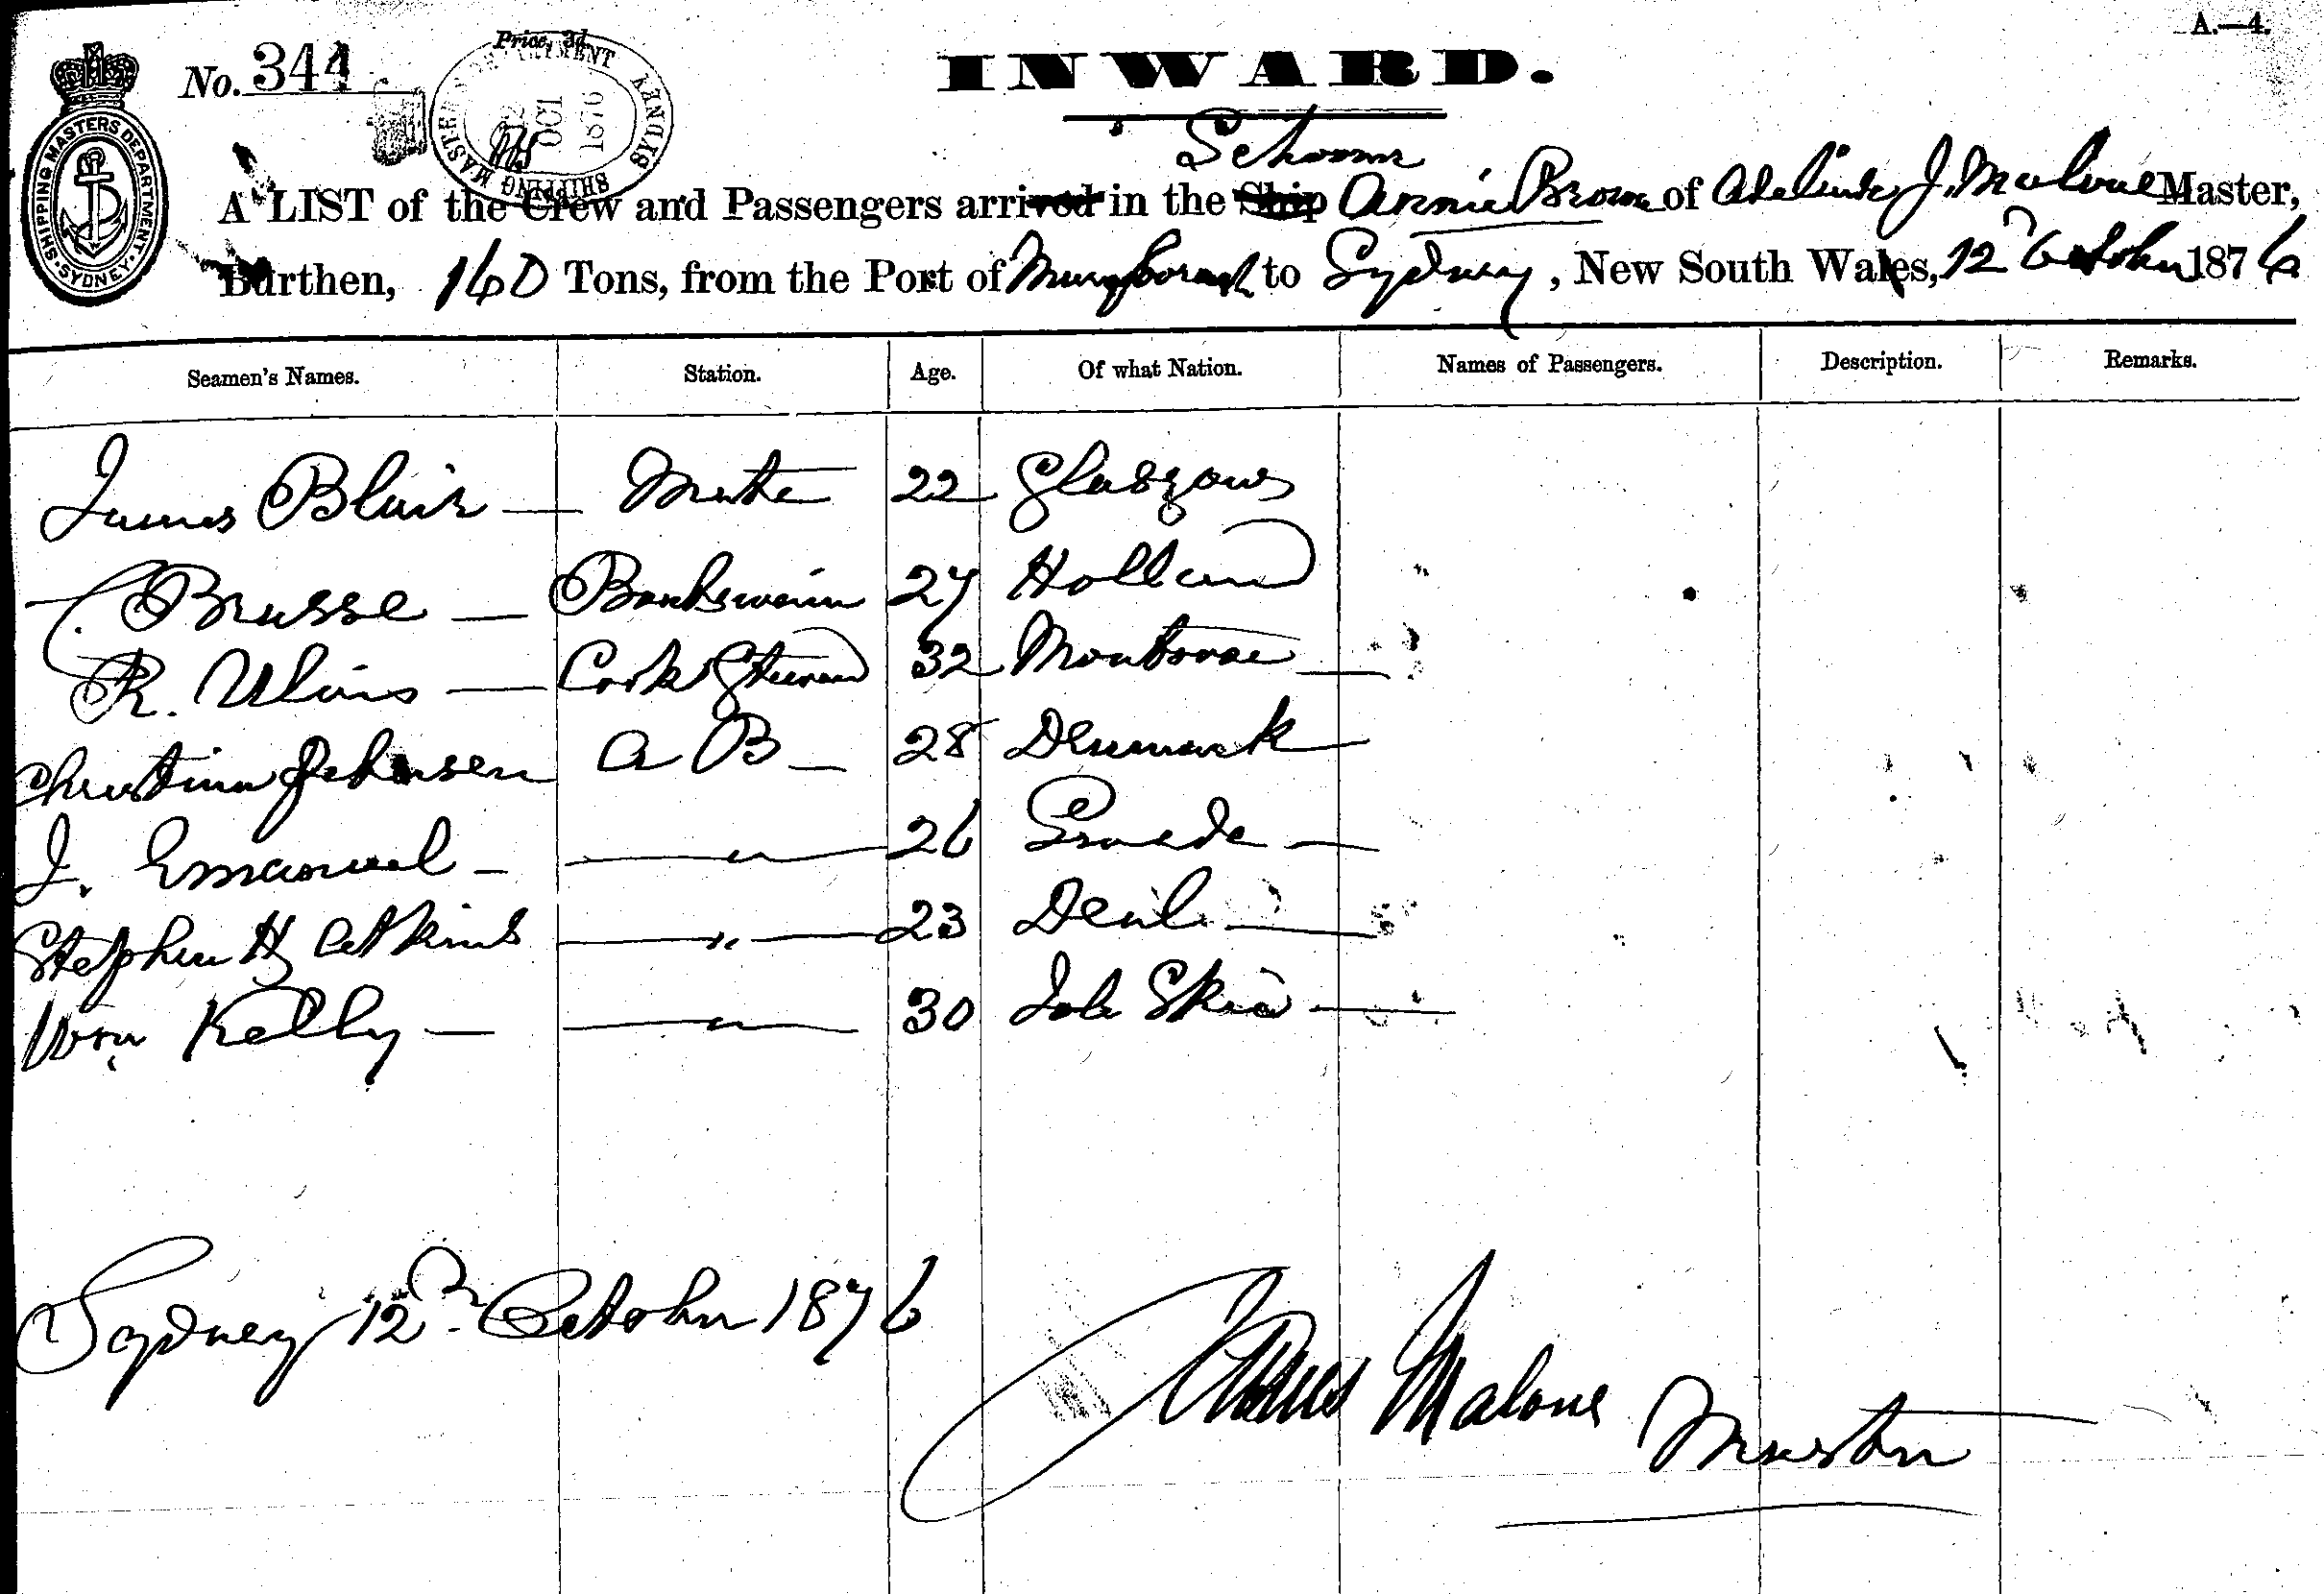 A.—4.
Price, 3d.
No. 344
INWARD.
SHIPPING MASTERS DEPARTMENT
SYDNEY
SHIPPING MASTER'S DEPARTMENT SYDNEY
OCT
1876
Schooner
A LIST of the Crew and Passengers arrived in the Ship Annie Brown of Adelaide J. Malone Master,
Burthen, 160 Tons, from the Port of Maryborough to Sydney, New South Wales, 12 October 1876
Seamen's Names. Station. Age. Of what Nation. Names of Passengers. Description. Remarks.
James Blair — Mate 22 Glasgow
Brusse — Boatswain 27 Holland
R. — Cook & Steward 32 Montrose —
Christian A B — 28 Denmark
J. Emanuel — — " — 26 —
Stephen H Atkins — " — 23 Deal —
Wm Kelly — — " — 30 Isle Skie —
Sydney 12th October 1876
James Malone Master